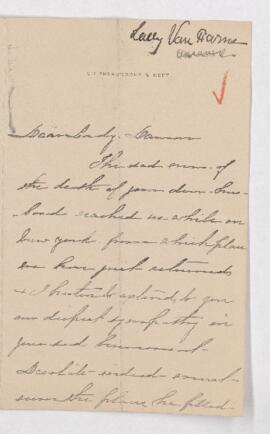 Lady Van Horne
Dear Lady Dawson
The sad news of
the death of your dear hus-
band reached us while in
New York from which place
we have just returned
& I hasten to extend to you
our deepest sympathy in
your sad bereavement
Desolate indeed
seem the place he filled